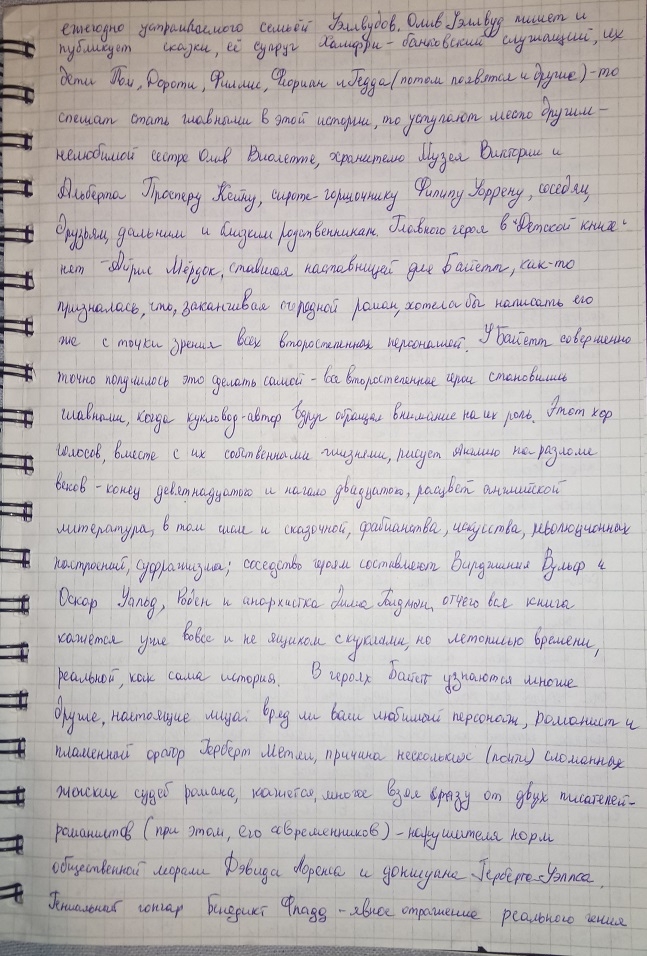 ежегодно устраиваемого семьёй Уэллвудов. Олив Уэллвуд пишет и
публикует сказки, её супруг Хамфри - банковский служащий, их
дети Том, Дороти, Филлис, Флориан и Гедда (потом появятся и другие) - то
спешат стать главными в этой истории, то уступают место другим -
нелюбимой сестре Олив Виолетте, хранителю Музея Виктории и
Альберта Просперу Кейну, сироте-горшочнику Филипу Уоррену, соседям,
друзьям, дальним и близким родственникам. Главного героя в "Детской книге"
нет - Айрис Мёрдок, ставшая наставницей для Байетт, как-то
призналась, что, заканчивая очередной роман, хотела бы написать его
же с точки зрения всех второстепенных персонажей. У Байетт совершенно
точно получилось это сделать самой - все второстепенные герои становились
главными, когда кукловод-автор вдруг обращал внимание на их роль. Этот хор
голосов, вместе с их собственными жизнями, рисует Англию на разломе
веков - конец девятнадцатого и начало двадцатого, расцвет английской
литературы, в том числе и сказочной, фабианства, искусства, революционных
настроений, суфражизма; соседство героям составляют Вирджиния Вульф и
Оскар Уальд, Роден и анархистка Эмма Голдман, отчего вся книга
кажется уже вовсе и не ящиком с куклами, но летописью времени,
реальной, как сама история. В героях Байетт узнаются многие
другие, настоящие лица: вряд ли ваш любимый персонаж, романист и
пламенный оратор Герберт Метли, причина нескольких (почти) сломанных
женских судеб романа, кажется, многое взял сразу от двух писателей-
романистов (при этом, его современников) - нарушителя норм
общественной морали Дэвида Лоренса и донжуана Герберта Уэллса.
Гениальный гончар Бенедикт Фладд - явное отражение реального гения